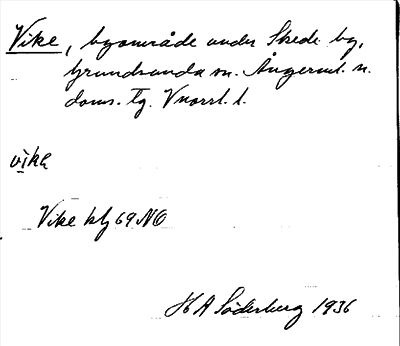 Vike, byområde under Skede by,
Grundsunda sn. Ångerml. n.
doms. tg. Vnorrl. l.
vika
Vike kbl 69 NO
H A Söderberg 1936